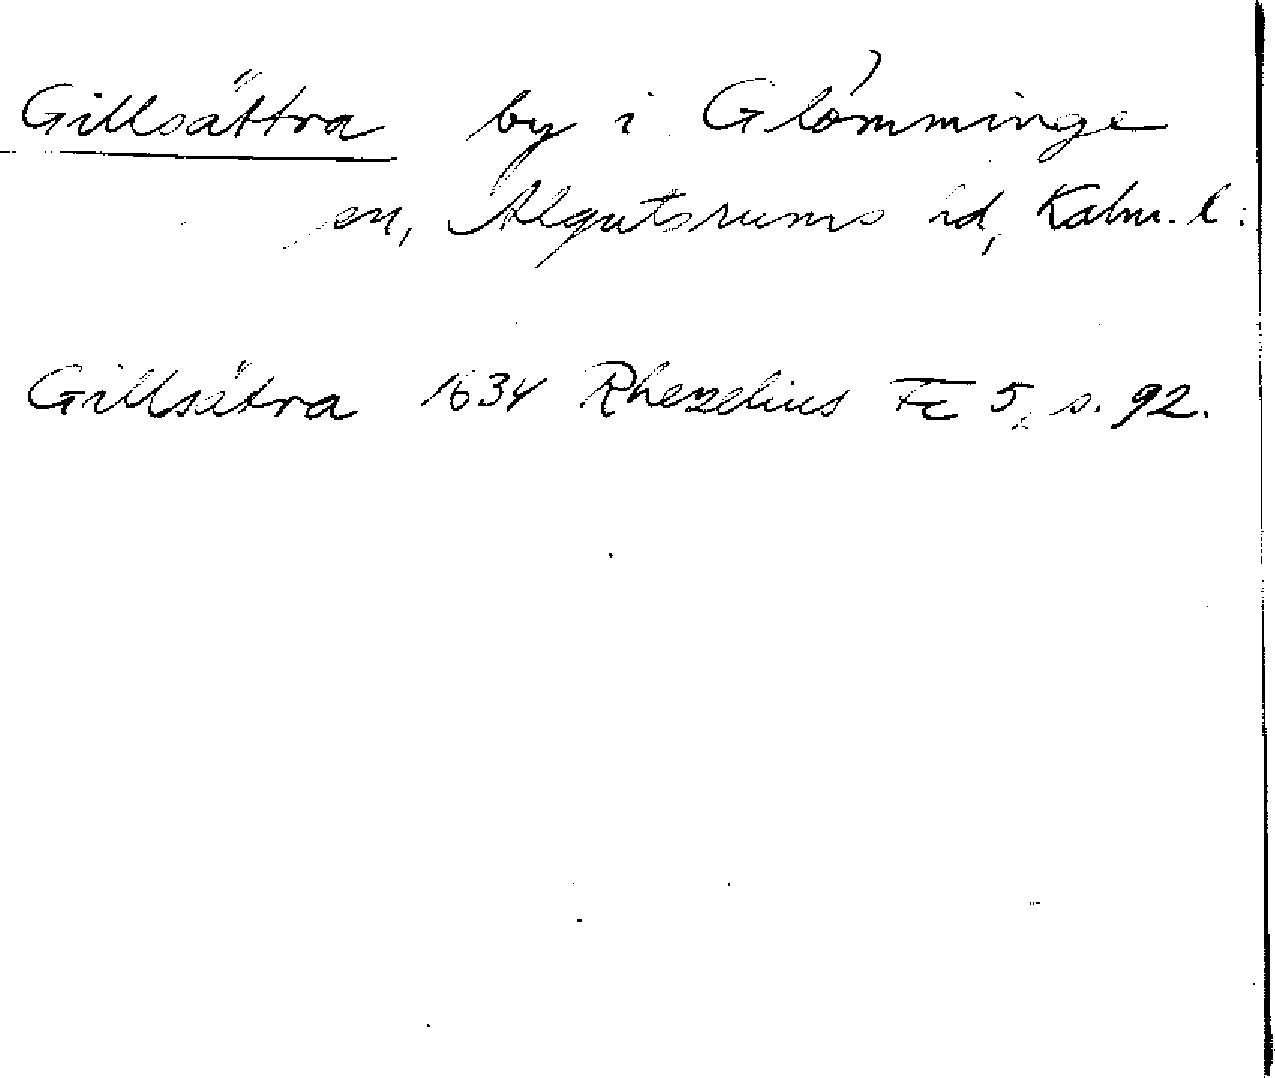 Gillsättra by i Glömminge
sn, Algutsrums hd, Kalm. l.
Gillsätra 1634 Rhezelius Fc 5, s. 92.